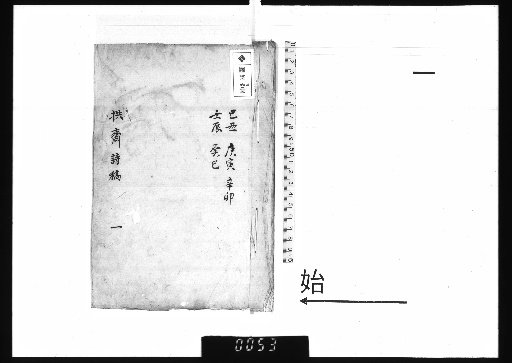 己丑 庚寅 辛卯
壬辰 癸巳
拱齋詩稿 一
始
0053